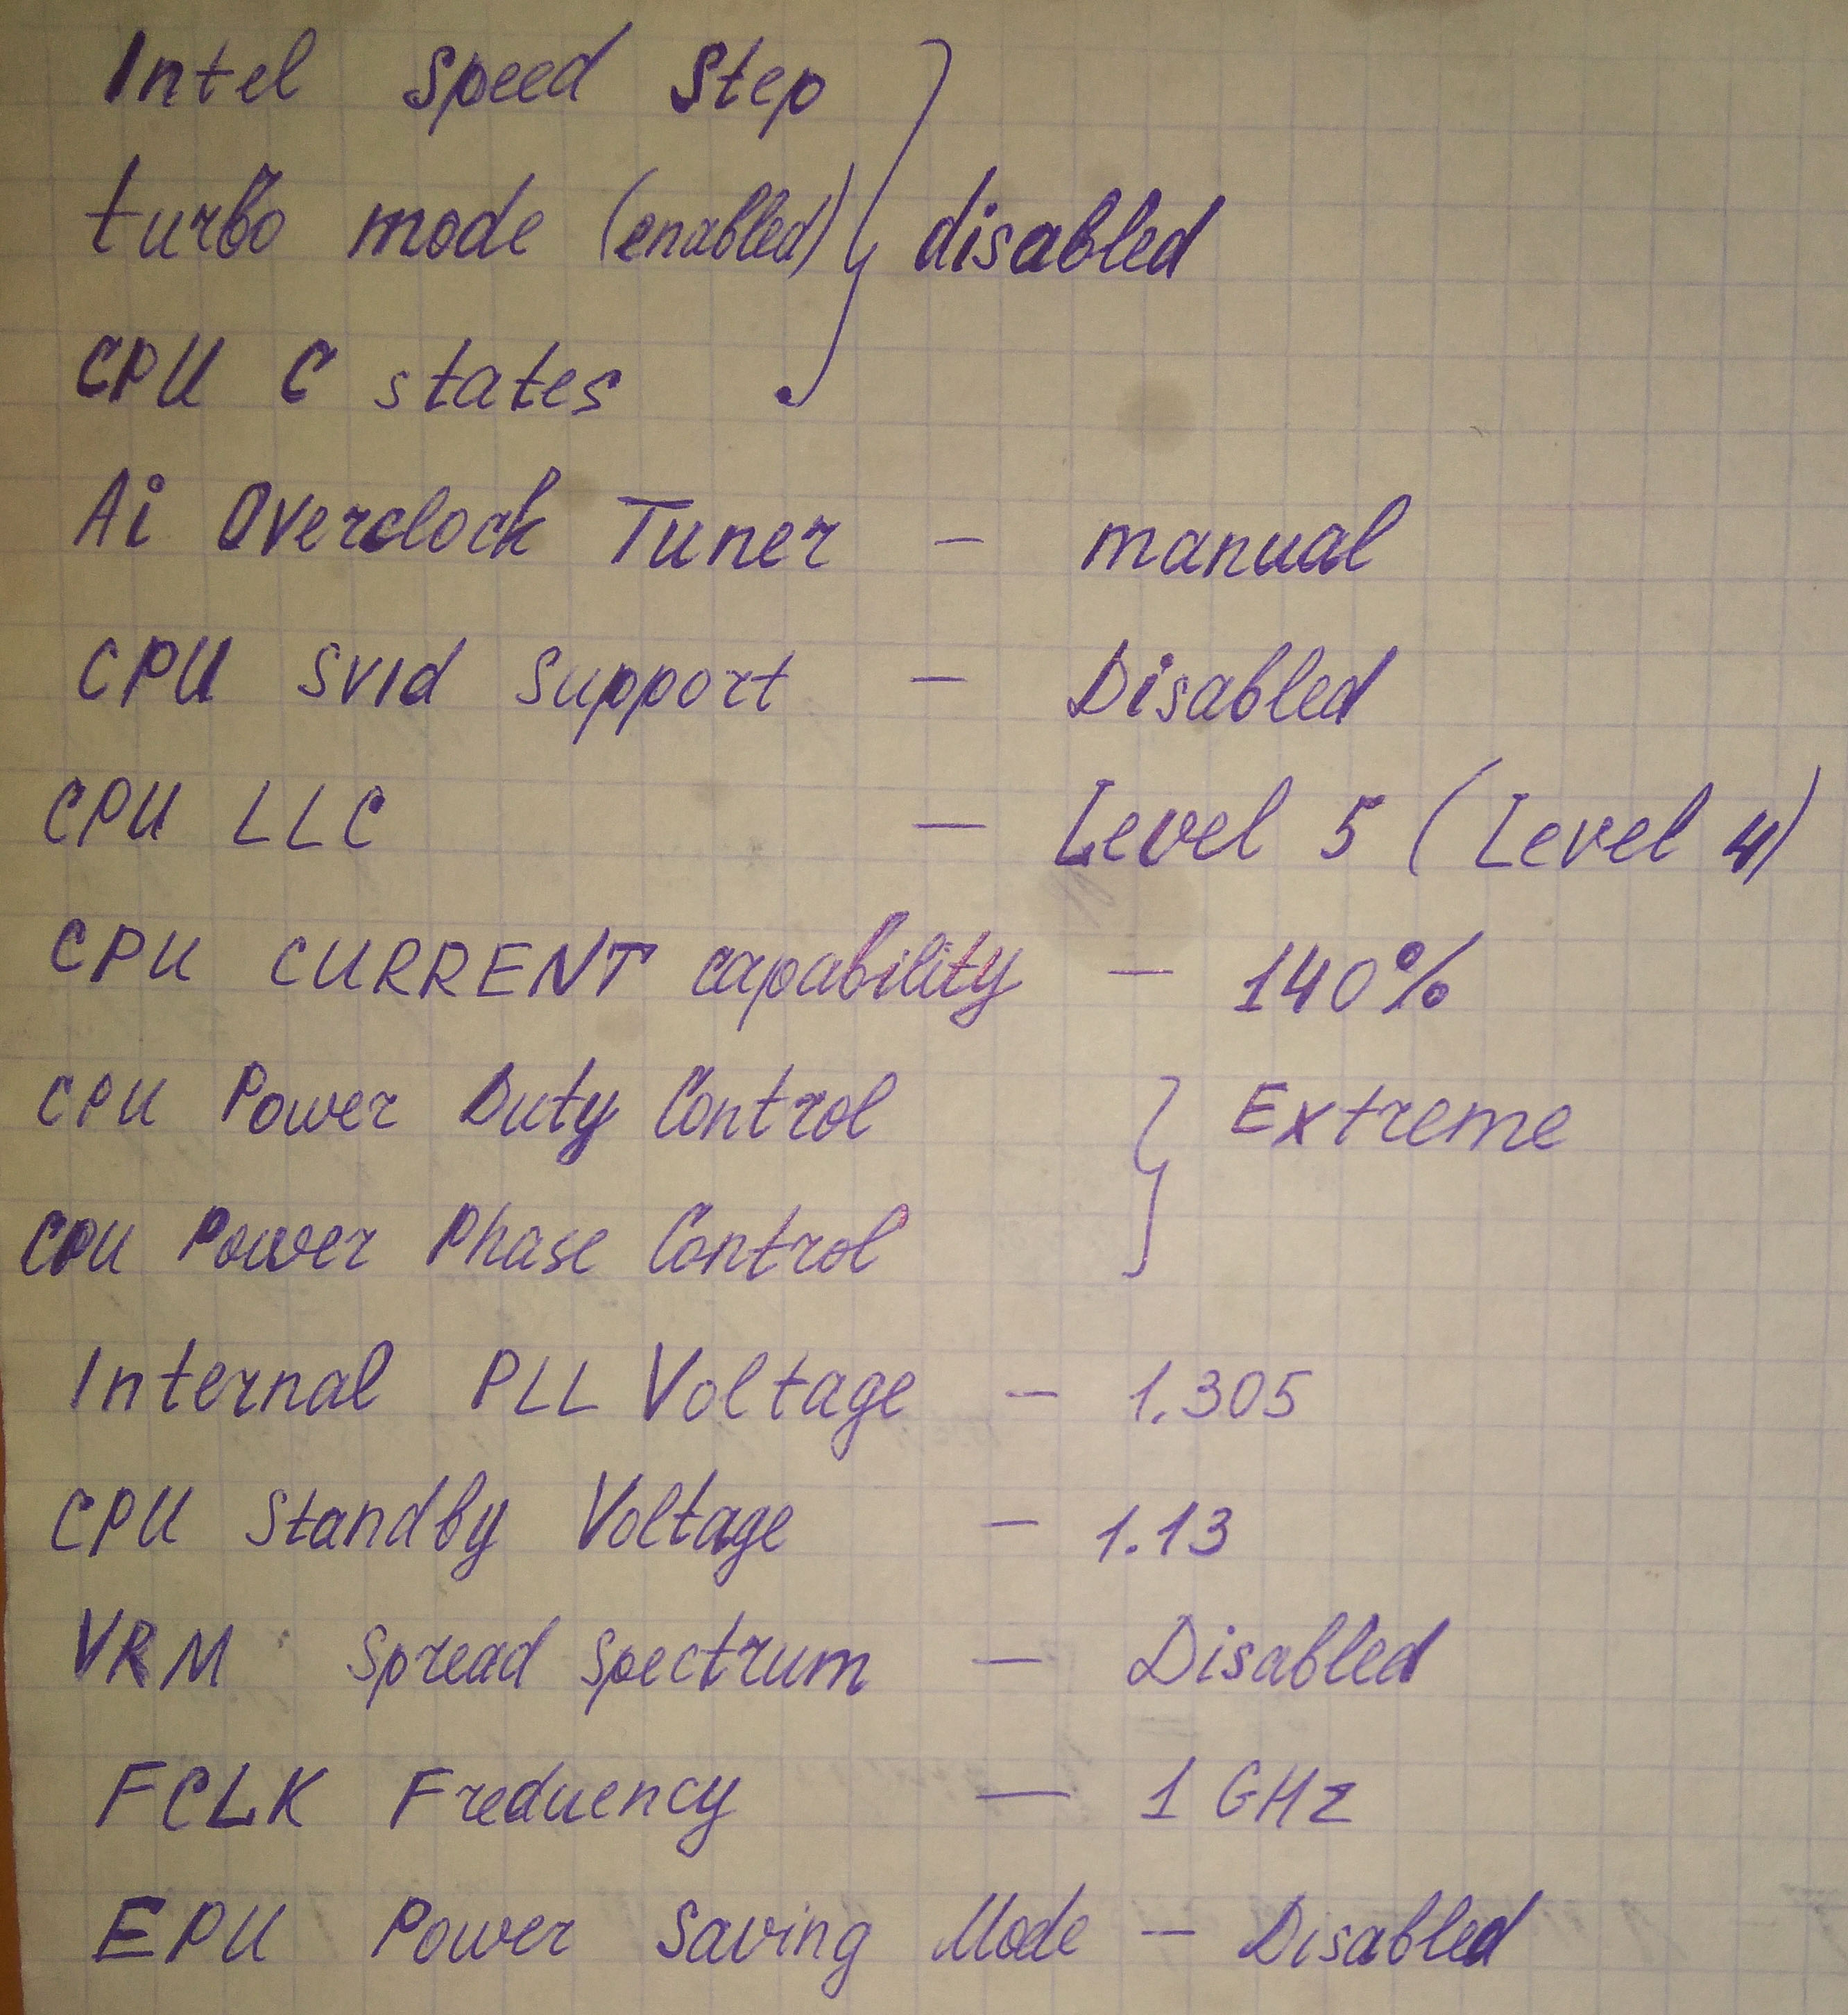 Intel Speed Step
turbo mode (enabled) } disabled
CPU C states
Ai Overclock Tuner — manual
CPU SVID Support — Disabled
CPU LLC — Level 5 (Level 4)
CPU CURRENT capability — 140%
CPU Power Duty Control } Extreme
CPU Power Phase Control
Internal PLL Voltage — 1.305
CPU Standby Voltage — 1.13
VRM Spread Spectrum — Disabled
FCLK Freduency — 1 GHz
EPU Power Saving Mode — Disabled